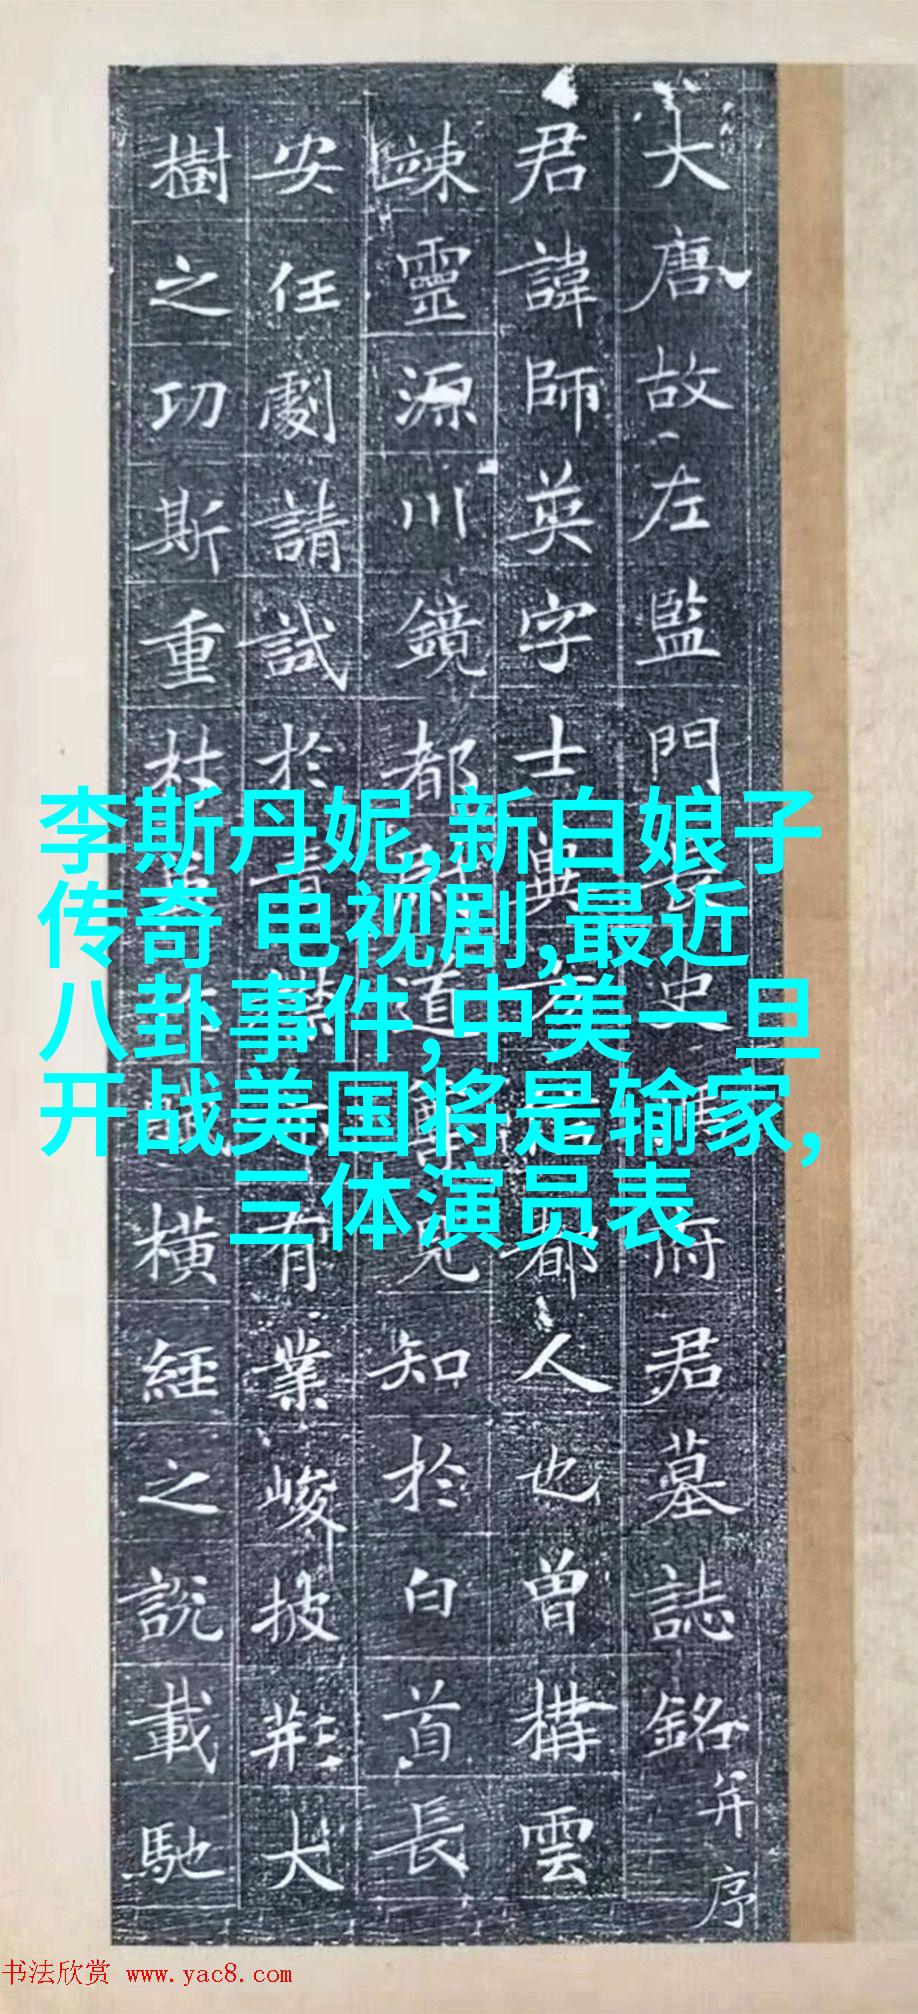 大唐故左監門
府君墓誌銘并序
君諱師英字士
都人也曾構雲
竦靈源川鏡都
道
兒知於白首長
安任劇請試於
有業峻披荊大
樹之功斯重
橫經之說載馳
李斯丹妮,新白娘子
传奇 电视剧,最近
八卦事件,中美一旦
开战美国将是输家,
三体演员表
书法欣赏 www.yac8.com